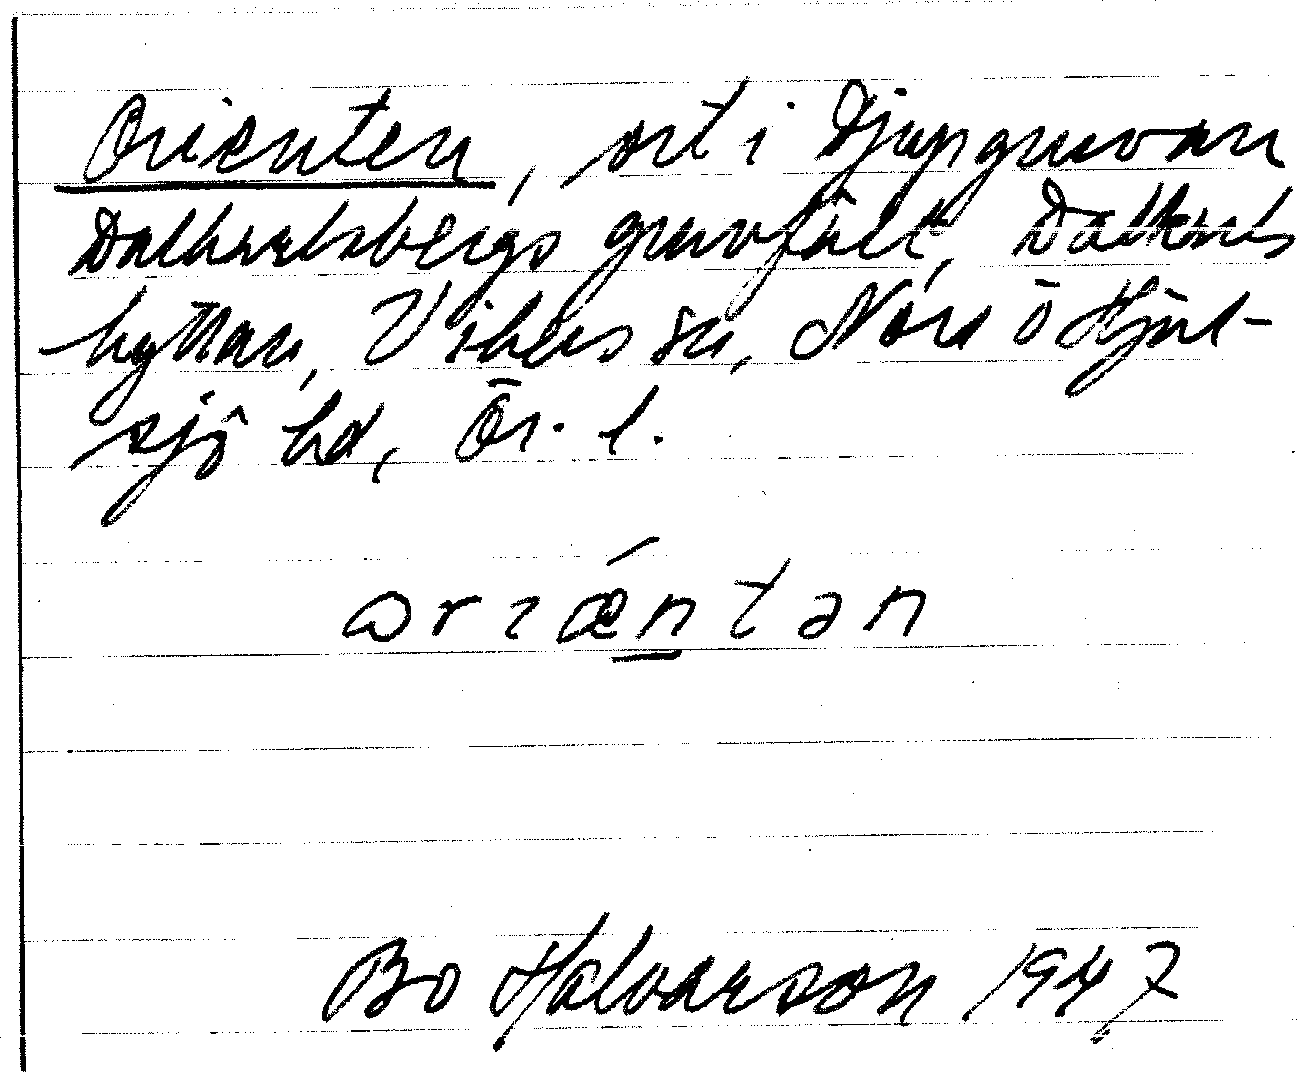 Orienten, ort i Djupgruvan
Dalkarlsbergs gruvfält, Dalkarls
hyttan, Vikers sn, Nora o Hjul-
sjö bd, Ör. l.
ɷrıǽntən
Bo Halvarson 1947